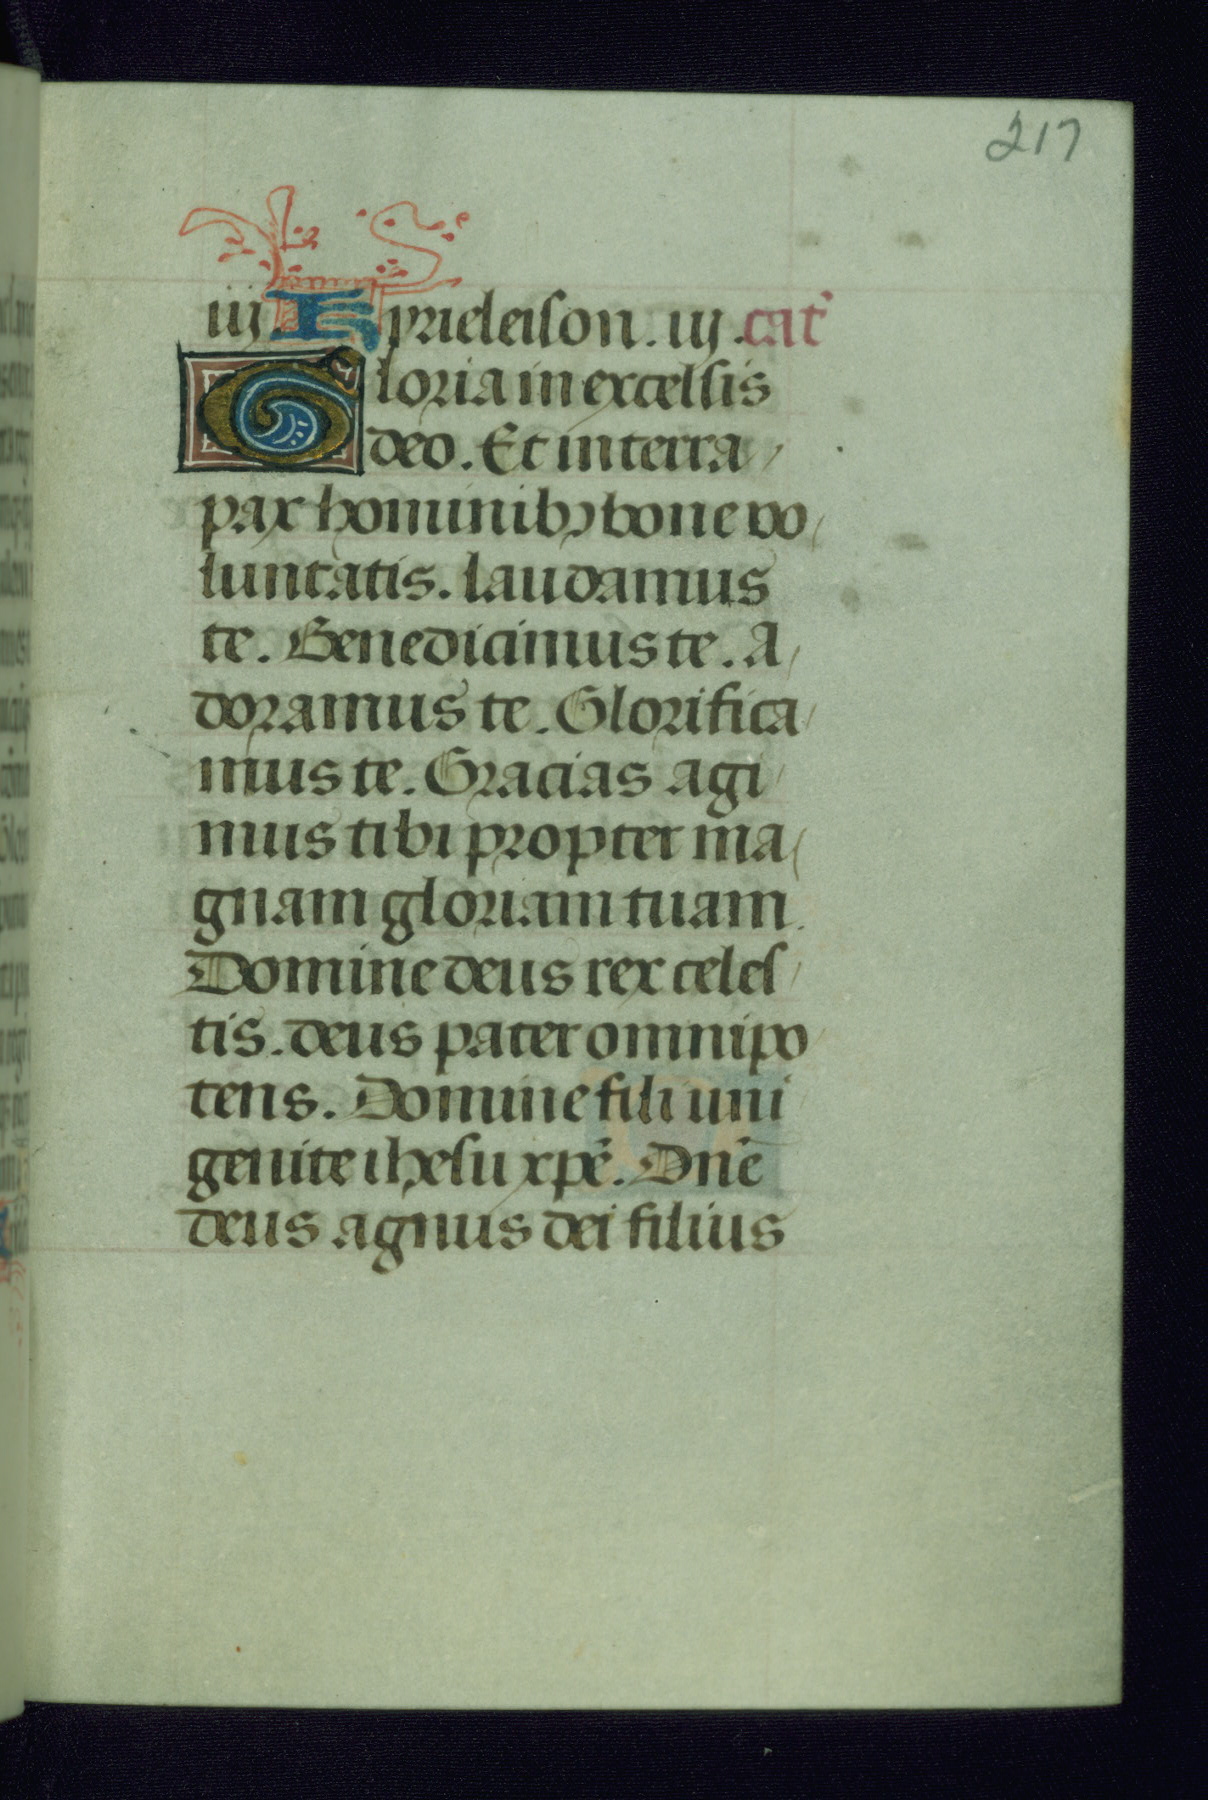 217
iij. Kyrieleison. iij. cat̃
Gloria in excelsis
deo. Et in terra
pax hominibꝫ bone vo
luntatis. laudamus
te. Benedicimus te. A
doramus te. Glorifica
mus te. Gracias agi
mus tibi propter ma
gnam gloriam tuam.
Domine deus rex celes
tis. deus pater omnipo
tens. Domine fili uni
genite ihesu xp̃e. Dñe
deus agnus dei filius